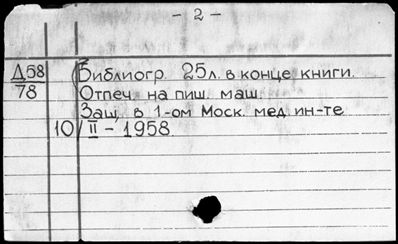 - 2 -
Д58 Библиогр. 25 л. в конце книги.
78 Отпеч. на пиш. маш.
Защ. в 1-ом Моск. мед. ин-те
10/II - 1958.